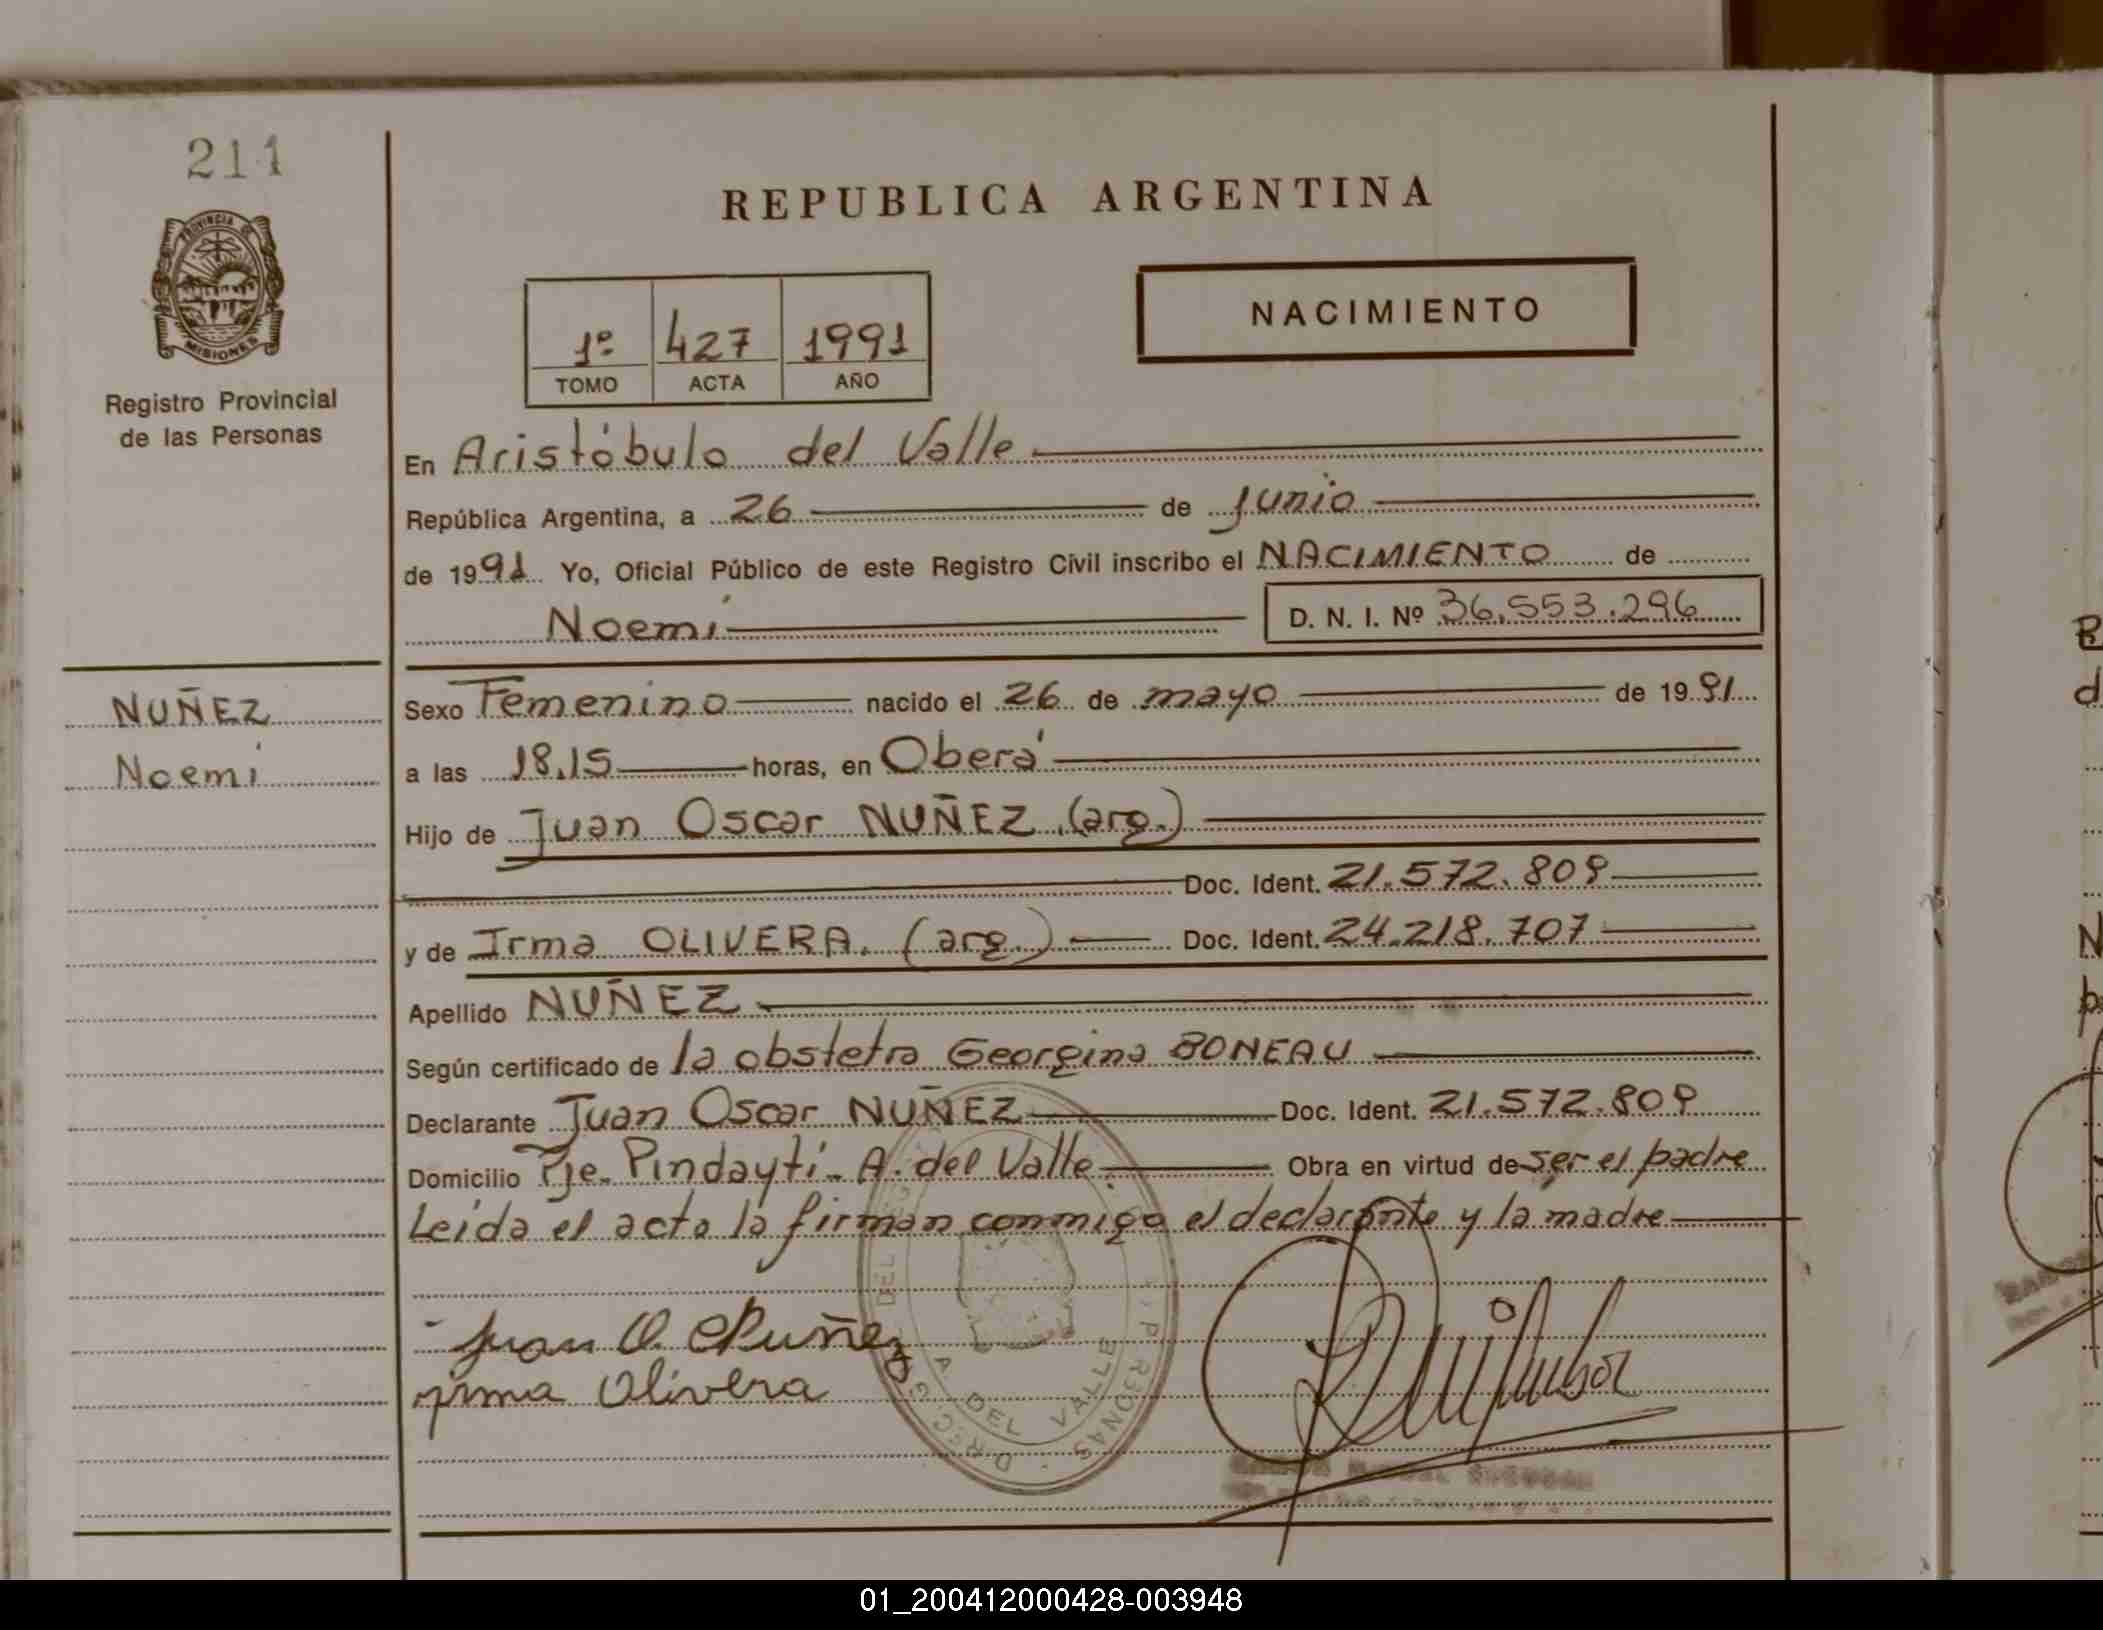 211
PROVINCIA DE
MISIONES
Registro Provincial
de las Personas
NUÑEZ
Noemí
REPUBLICA ARGENTINA
1º 427 1991
TOMO ACTA AÑO
NACIMIENTO
En Aristóbulo del Valle
República Argentina, a 26 de junio
de 1991 Yo, Oficial Público de este Registro Civil inscribo el NACIMIENTO de
Noemí D. N. I. Nº 36.553.296
Sexo Femenino nacido el 26 de mayo de 1991
a las 18,15 horas, en Oberá
Hijo de Juan Oscar NUÑEZ (arg.)
Doc. Ident. 21.572.809
y de Irma OLIVERA. (arg.) Doc. Ident. 24.218.707
Apellido NUÑEZ
Según certificado de la obstetra Georgina BONEAU
Declarante Juan Oscar NUÑEZ Doc. Ident. 21.572.809
Domicilio Pje. Pindaytí - A. del Valle. Obra en virtud de ser el padre
Leída el acta la firman conmigo el declarante y la madre
Juan O. Nuñez
irma Olivera
A. DEL VALLE
01_200412000428-003948